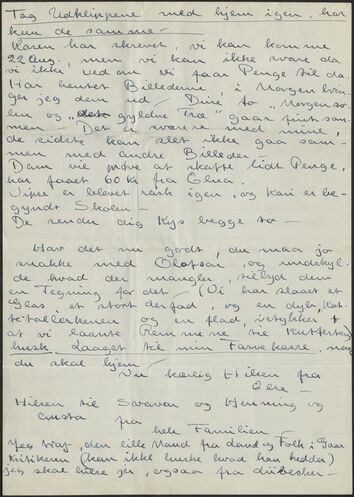 Tag Udklippene med hjem igen, har
kun de samme —
Karen har skrevet, vi kan komme
22 Aug., men vi kan ikke svare da
vi ikke ved om vi faar Penge til da.
Har hentet Billederne, i Morgen brin
ger jeg dem ud — Dine to "Morgenso-
len og "det gyldne Træ" gaar fint sam-
men — Det er svære med mine,
de sidste kan slet ikke gaa sam-
men med andre Billeder.
Dam vil prøve at skaffe lidt Penge,
har faaet 60 kr fra Elna.
er blevet rask igen, og Kari er be-
gyndt Skolen —
De sender dig Kys begge to —
Hav det nu godt, du maa jo
snakke med Olafson, og undskyl-
de hvad der mangler, tilbyd dem
en Tegning for det — (Vi har slaaet et
Glas, et stort Ler fad, og en dyb, Kat-
te-tallerkenen og en flad istykker +
at vi laante Remmene til Kufferten)
husk Laaget til min Farvekasse, naar
du skal hjem —
Nu kærlig Hilsen fra
Else —
Hilsen til Svavar og Henning og
Gusta fra
hele Familien
den lille Mand fra Land og Folk i Gaar
Kritikeren (kan ikke huske hvad han hedder)
jeg skal hilse jer, ogsaa fra